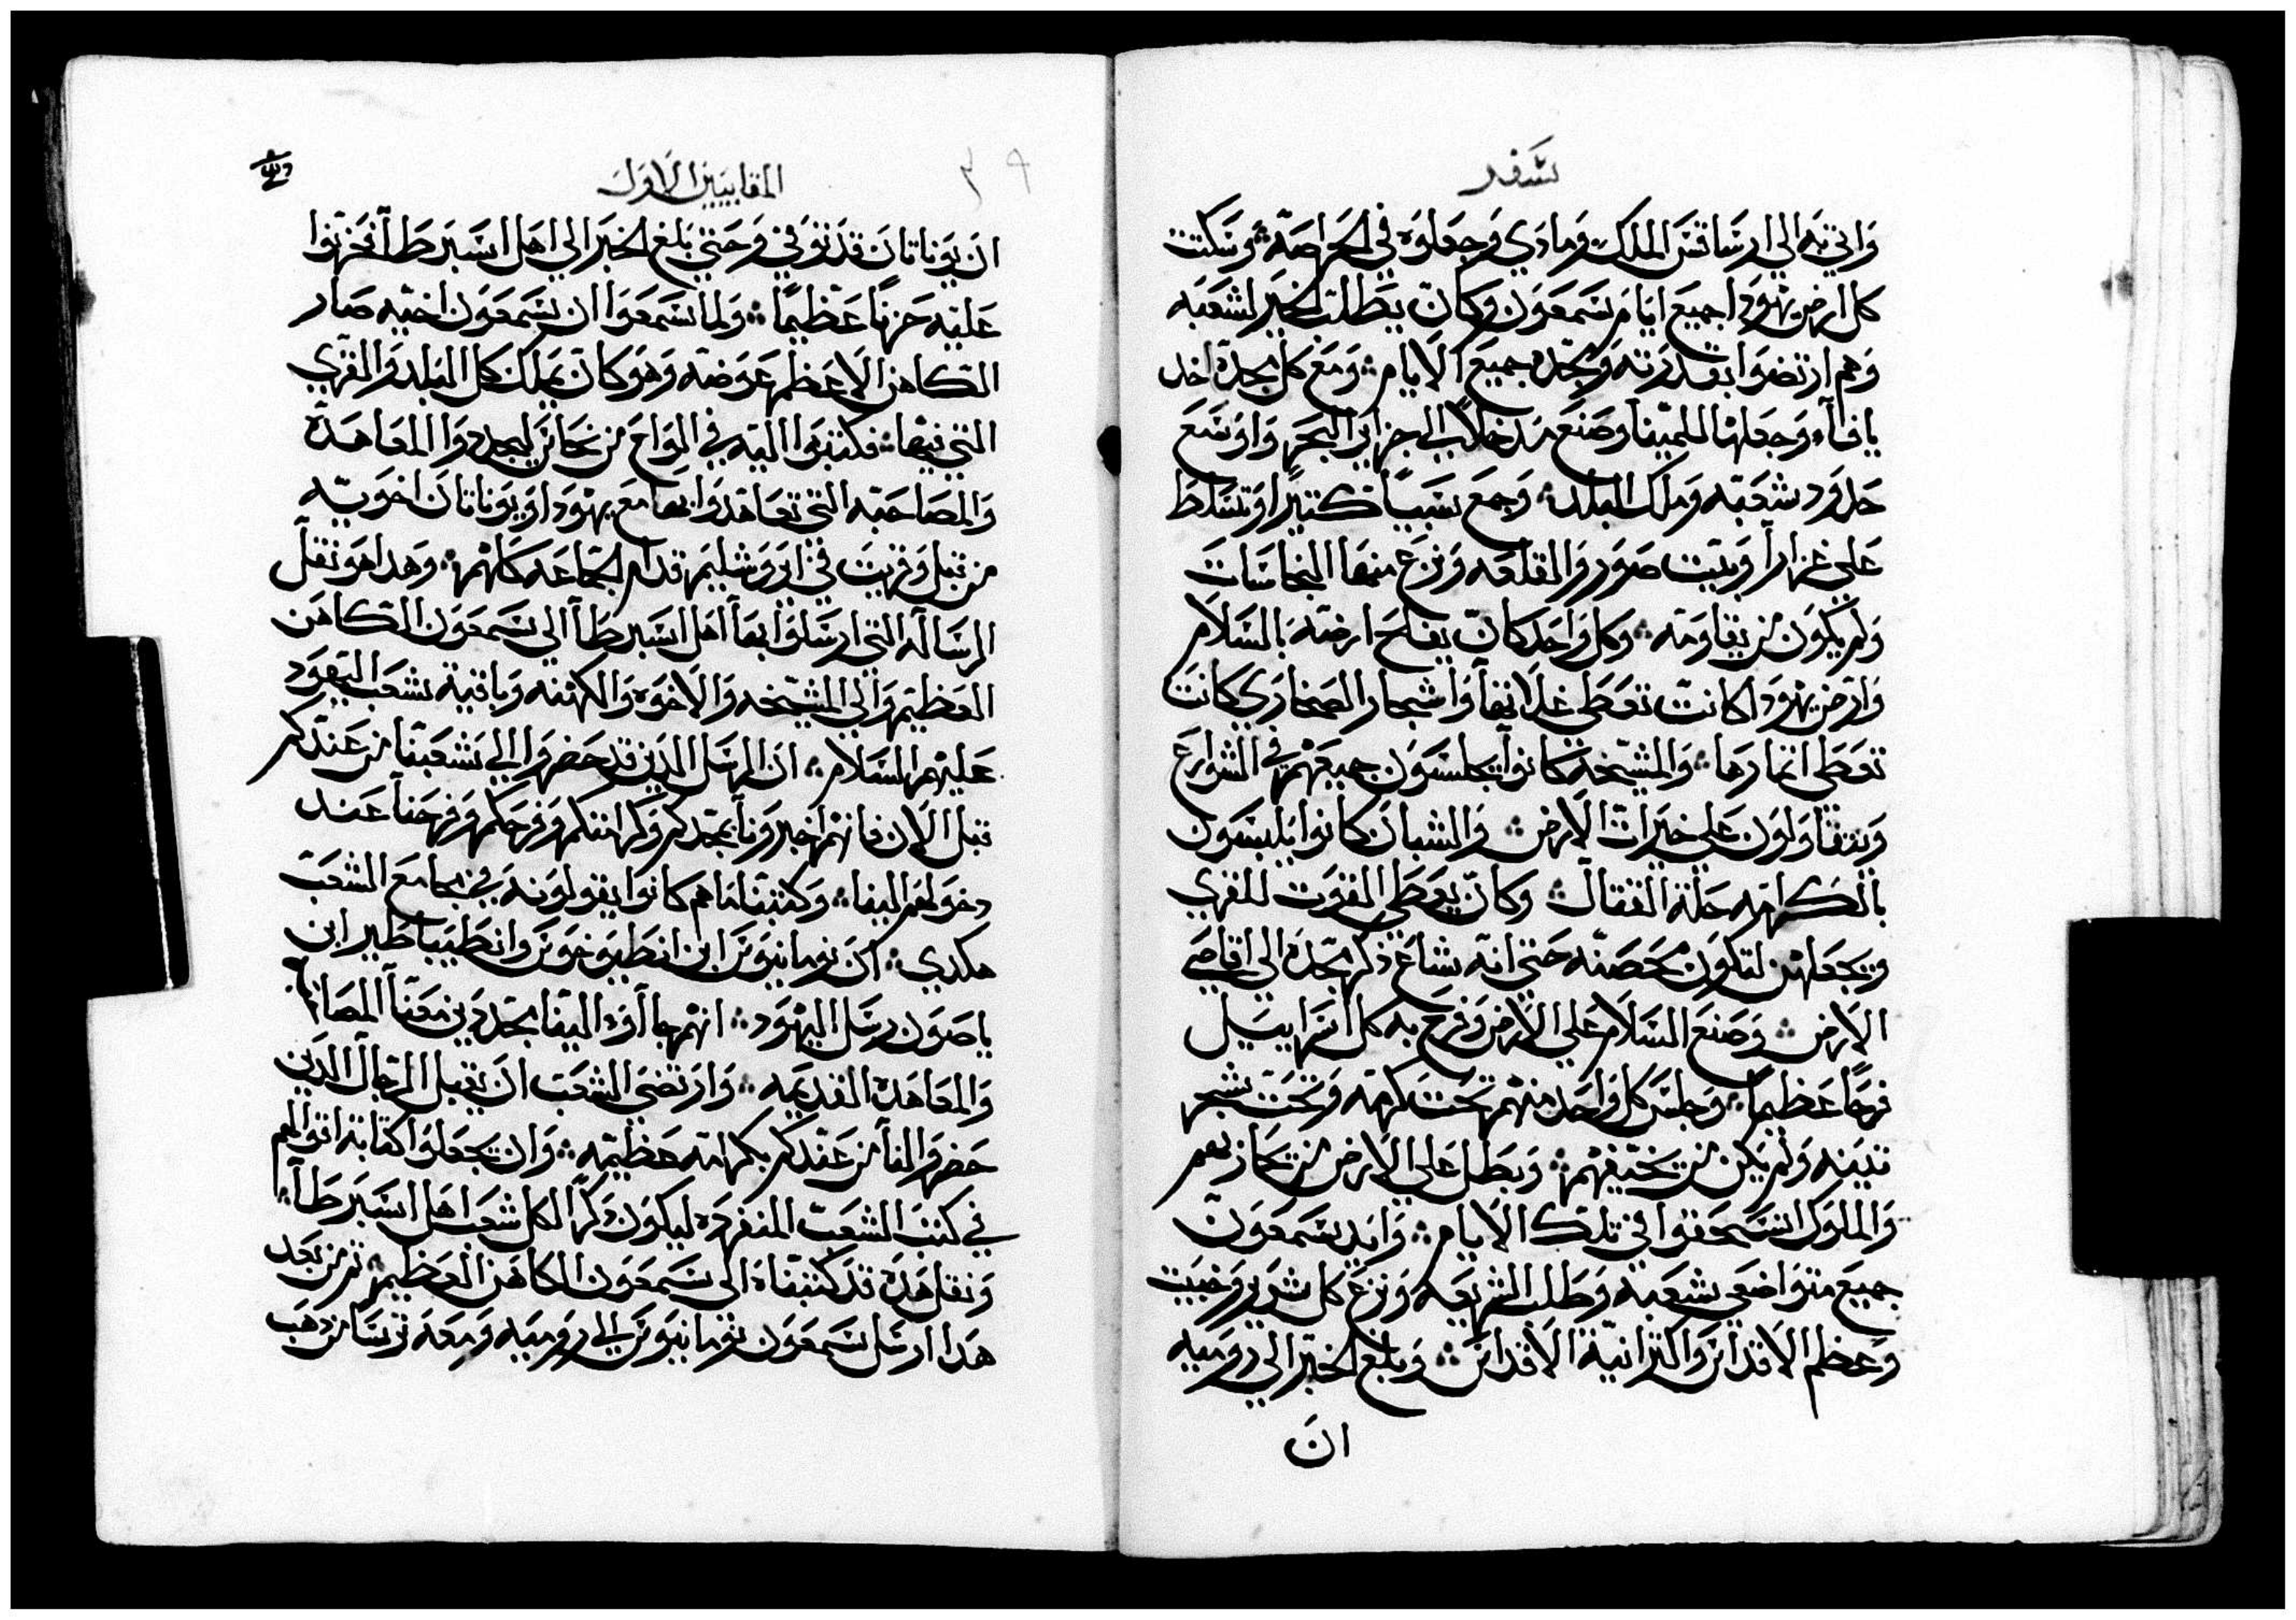 سفر
واتي به الي ارساقس الملك ومادي وجعلوه في الحراصة ۞ وسكتت
كل ارض يهودا جميع ايام سمعون وكان يطلب الخير لشعبه
وهم ارتضوا بقدرته وبمجده جميع الايام ۞ ومع كل مجده اخد
يافاء وجعلها للمينا وصنع مدخلاً الي جزاير البحر واوسع
حدود شعبه وملك البلد ۞ وجمع سبياً كتيراً وتسلط
علي غزارا وبيت صور والقلعه ونزع منها النجاسات
ولم يكون من يقاومه ۞ وكل واحد كان يفلح ارضه بالسلام
وارض يهودا كانت تعطي غلاتها واشجار الصحاري كانت
تعطي اتمارها ۞ والمشيخة كانوا يجلسون جميعهم في الشوارع
ويتقاولون علي خيرات الارض ۞ والشبان كانوا يلبسون
بالكرامه حلة القتال ۞ وكان يعطي القوت للقري
ويجعلهن لتكون محصنه حتي انه شاع ذكر مجده الي اقاصي
الارض ۞ وصنع السلام علي الارض وفرح به كل اسراييل
فرحاً عظيماً ۞ وجلس كل واحد منهم تحت كرمه وتحت شجر
تينه ولم يكن من يخيفهم ۞ وبطل علي الارض من يحاربهم
والملوك انسحقوا في تلك الايام ۞ وايد سمعون
جميع متواضعي شعبه وطلب الشريعه ونزع كل شرير وخبيت
وعظم الاقداس والترانية الاقداس ۞ وبلغ الخبر الي روميه
ان
المقابيين الاول
ان يوناتان قد توفي وحتي بلغ الخبر الي اهل اسبرطا فحزنوا
عليه حزناً عظيماً ۞ ولما سمعوا ان سمعون اخيه صار
الكاهن الاعظم عوضه وهو كان يملك كل البلد والقري
التي فيها ۞ فكتبوا اليه في الواح من نحاس ليجددوا المعاهدة
والمصاحبه التي تعاهدوا بها مع يهودا ويوناتان اخويه
من قبل وقريت في اروشليم قدام الجماعه كلهم ۞ وهدا هو نقل
الرساله التي ارسلوا بها اهل اسبرطا الي سمعون الكاهن
العظيم والي المشيخه والاخوه والكهنه وباقية شعب اليهود
عليهم السلام ۞ ان الرسل الدين قد حضروا الي شعبنا من عندكم
قبل الان فانهم اخبرونا بمجدكم وكرامتكم وفرحكم وفرحنا عند
دخولهم الينا ۞ وكتبنا ما هم كانوا يقولونه في مجامع الشعب
هكدي ۞ ان نومانيوس ابن انطيوخوس وانطيباطير ابن
ياصون رسل اليهود ۞ انهم جاآوا الينا مجددين معنا المصا
والمعاهدة القديمه ۞ وارتضي الشعب ان يقبل الرجال الدين
حضروا لنا من عندكم بكرامه عظيمه ۞ وان يجعلوا كتابة اقوالهم
في كتب الشعب المنفرده ليكون دكراً لكل شعب اهل اسبرطا ۞
ونقل هده قد كتبناه الي سمعون الكاهن العظيم ۞ تم من بعد
هدا ارسل سمعون نومانيوس الي روميه ومعه ترسا من دهب